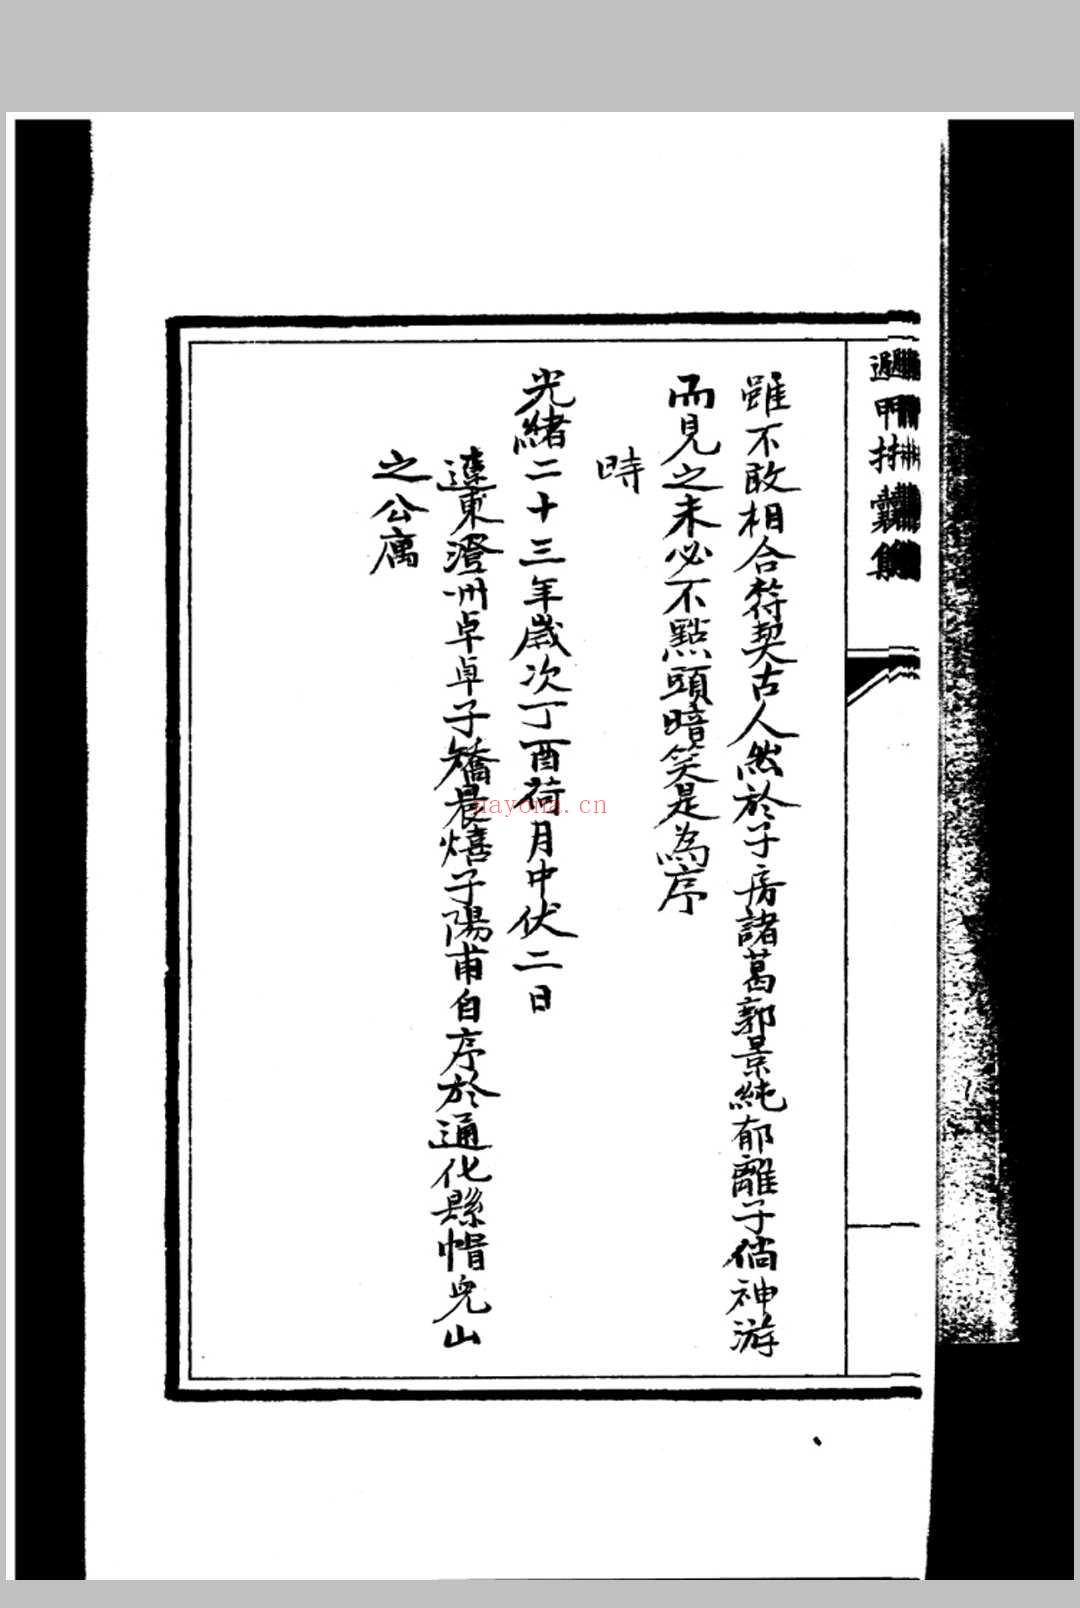 遁甲括囊集
雖不敢相合符契古人然於子房諸葛郭景純郁離子倘神游
而見之未必不點頭暗笑是為序
時
光緒二十三年歲次丁酉荷月中伏二日
遼東澄州卓卓子矯晨熺子陽甫自序於通化縣帽兒山
之公廨
nayona.cn